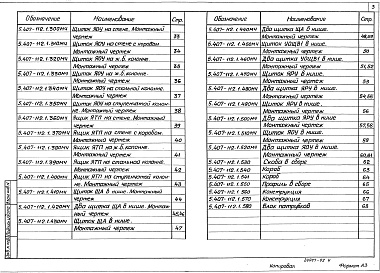 3
Обозначение Наименование Стр.
5.407-112.1.300МЧ Щиток ЯОУ на стене. Монтажный
чертеж 33
5.407-112.1.310МЧ Щиток ЯОУ на стене с коробом.
Монтажный чертеж 34
5.407-112.1.320МЧ Щиток ЯОУ на ж.б. колонне.
Монтажный чертеж 35
5.407-112.1.330МЧ Щиток ЯОУ на ж.б. колонне.
Монтажный чертеж 36
5.407-112.1.340МЧ Щиток ЯОУ на стальной колонне.
Монтажный чертеж 37
5.407-112.1.350МЧ Щиток ЯОУ на ступенчатой колонне.
Монтажный чертеж 38
5.407-112.1.360МЧ Ящик ЯТП на стене. Монтажный
чертеж 39
5.407-112.1.370МЧ Ящик ЯТП на стене с коробом.
Монтажный чертеж 40
5.407-112.1.380МЧ Ящик ЯТП на ж.б. колонне.
Монтажный чертеж 41
5.407-112.1.390МЧ Ящик ЯТП на стальной колонне.
Монтажный чертеж 42
5.407-112.1.400МЧ Ящик ЯТП на ступенчатой колон-
не. Монтажный чертеж 43
5.407-112.1.410МЧ Щиток ЩА в нише. Монтажный
чертеж 44
5.407-112.1.420МЧ Два щитка ЩА в нише. Монтаж-
ный чертеж 45,46
5.407-112.1.430МЧ Щиток ЩА в нише.
Монтажный чертеж 47
Обозначение Наименование Стр.
5.407-112.1.440МЧ Два щитка ЩА в нише.
Монтажный чертеж 48,49
5.407-112.1.450МЧ Щиток УОЩВ1 в нише.
Монтажный чертеж 50
5.407-112.1.460МЧ Два щитка УОЩВ1 в нише.
Монтажный чертеж 51,52
Монтажный чертеж 53
Монтажный чертеж 54,55
Монтажный чертеж 56
Монтажный чертеж 57,58
Монтажный чертеж 59
Монтажный чертеж 60,61
5.407-112.1.530 Скоба в сборе 62
5.407-112.1.540 Короб 63
Короб 64
5.407-112.1.550 Профиль в сборе 65
5.407-112.1.560 Конструкция 66
5.407-112.1.570 Конструкция 67
5.407-112.1.580 Блок патрубков 68
Копировал Формат А3